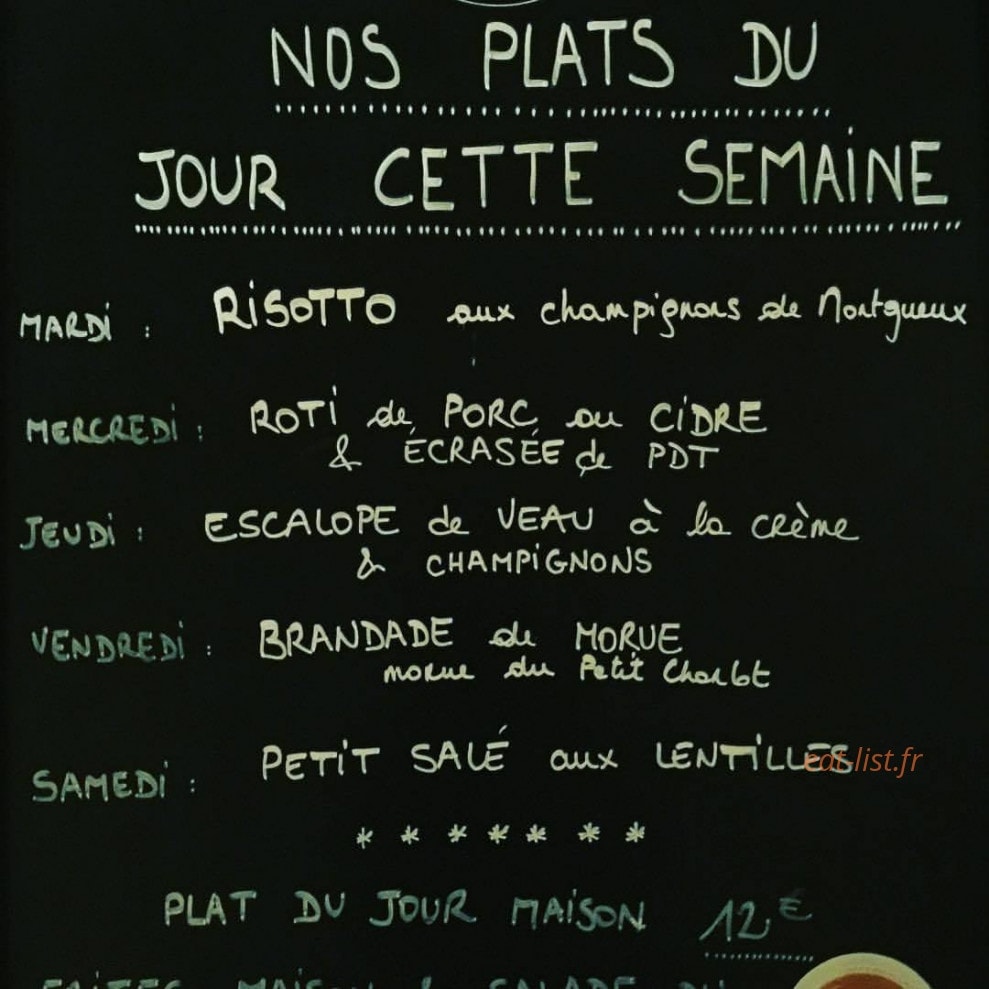 NOS PLATS DU
JOUR CETTE SEMAINE
MARDI : RISOTTO aux champignons de Montgueux
MERCREDI : ROTI de PORC au CIDRE
& ÉCRASÉE de PDT
JEUDI : ESCALOPE de VEAU à la crème
& CHAMPIGNONS
VENDREDI : BRANDADE de MORUE
morue du Petit Charlot
SAMEDI : PETIT SALÉ aux LENTILLES
eat-list.fr
* * * * * * *
PLAT DU JOUR MAISON 12€
MAISON & SALADE DU